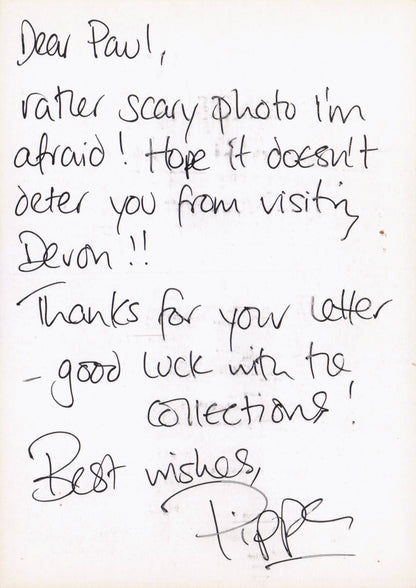 Dear Paul,
rather scary photo I'm
afraid! Hope it doesn't
deter you from visiting
Devon!!
Thanks for your letter
- good luck with the
collections!
Best wishes,
Pippa